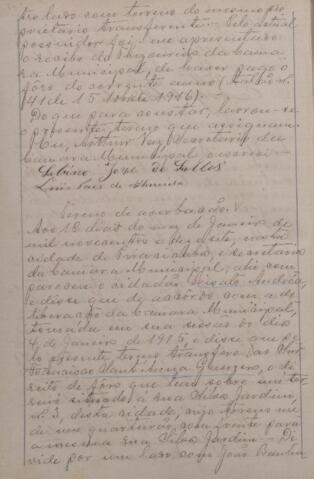 um lado com terreno do mesmo pro-
prietario transferente. Pelo actual
possuidor foi me apresentado
o recibo da Thezouraria da Cama-
ra Municipal, de haver pago o
fôro do corrente anno (Talão n.
41 de 15 1916).
Do que para constar, lavrou-se
o presente termo que assignam.
Eu, Arthur Vaz, Secretario da
Camara Municipal o escrevi.
Sabino José de Salles
Luiz Vaz de
Termo de averbação.
Aos 18 dias do mez de Janeiro de
mil novecentos e dezesete, nesta
cidade de e Secretaria
da Camara Municipal, ahi com-
pareceu o cidadão
e disse que de accôrdo com a de-
liberação da Camara Municipal,
tomada em sua sessão do dia
4 de Janeiro de 1915, e disse que pe-
lo presente termo transfere
o di-
reito de fôro que tem sobre um ter-
reno situado á rua Silva Jardim
n. 3, desta cidade, cujo terreno me-
de um quarteirão, com frente para
a mesma rua Silva Jardim - Di-
vide por um lado com João Baptista